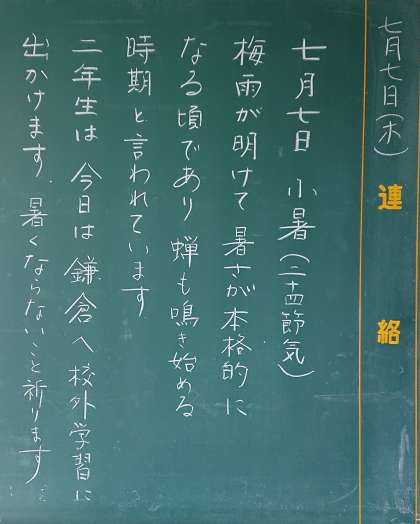 七月七日(木)
連絡
七月七日 小暑(二十四節気)
梅雨が明けて 暑さが本格的に
なる頃であり 蝉も鳴き始める
時期と言われています
二年生は 今日は 鎌倉へ 校外学習に
出かけます。暑くならないこと祈ります